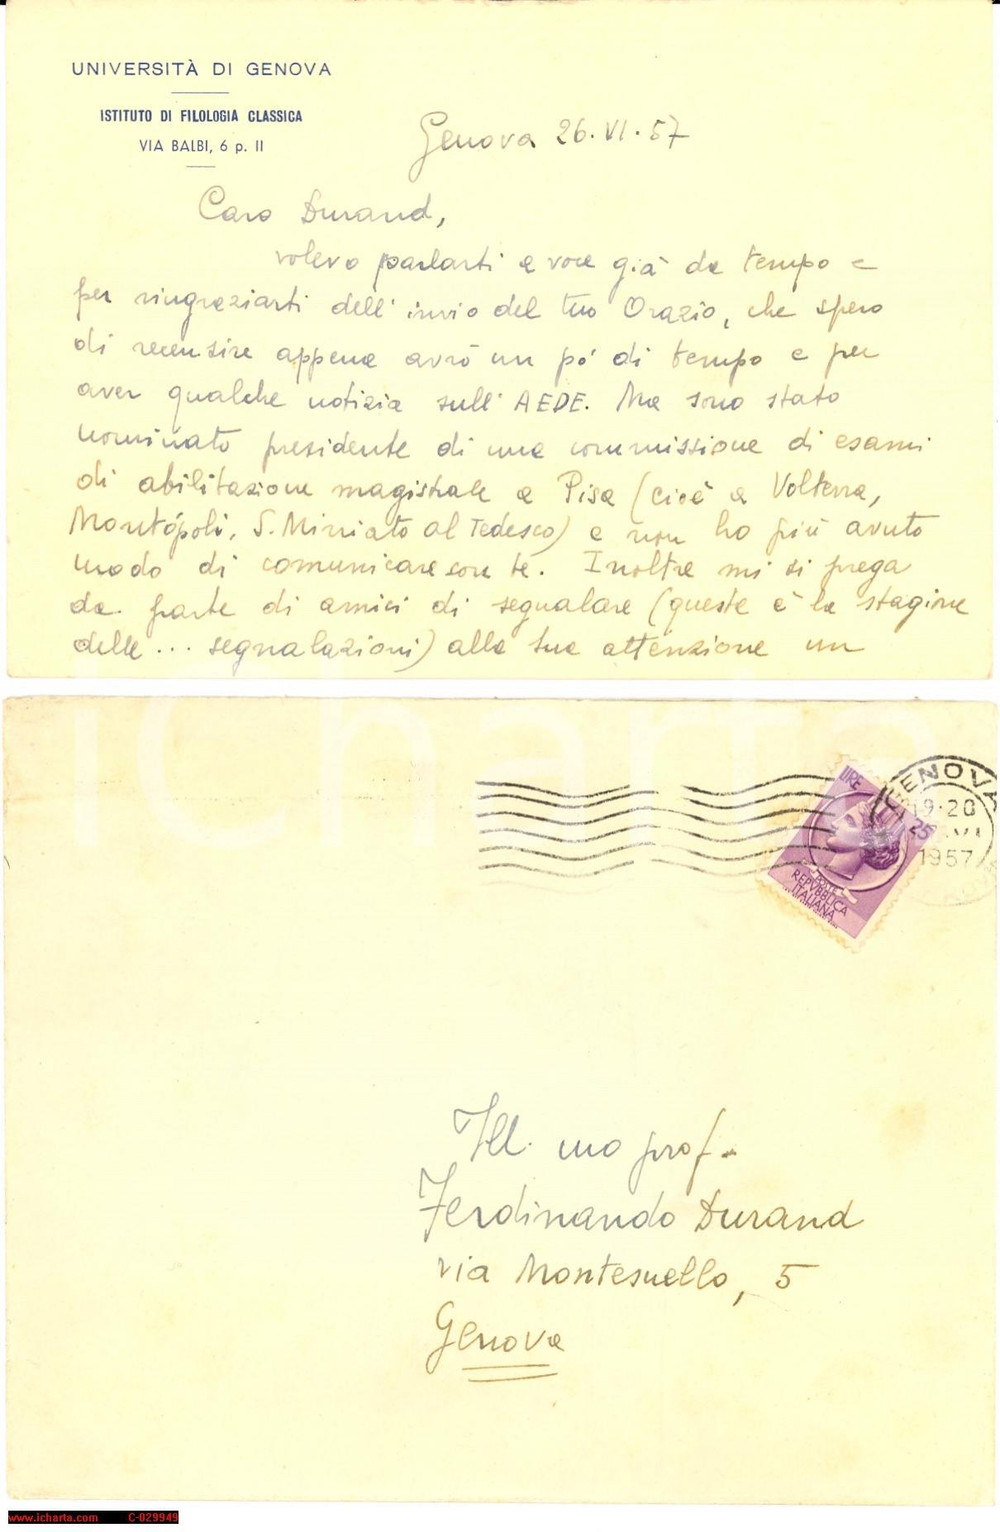 UNIVERSITÀ DI GENOVA
ISTITUTO DI FILOLOGIA CLASSICA
VIA BALBI, 6 p. II
Genova 26.VI.57
Caro Durand,
volevo parlarti a voce già da tempo e
per ringraziarti dell'invio del tuo Orazio, che spero
di recensire appena avrò un pò di tempo e per
aver qualche notizia sull'AEDE. Ma sono stato
nominato presidente di una commissione di esami
di abilitazione magistrale a Pisa (cioè a Volterra,
Montópoli, S. Miniato al Tedesco) e non ho più avuto
modo di comunicare con te. Inoltre mi si prega
da parte di amici di segnalare (questa è la stagione
delle... segnalazioni) alla tua attenzione un
icharta
GENOVA
19-20
VI
1957
LIRE
25
POSTE
REPVBBLICA
ITALIANA
Ill. mo prof.
Ferdinando Durand
via Montesuello, 5
Genova
www.icharta.com C-029949